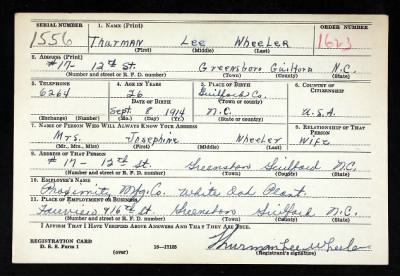 SERIAL NUMBER 1. NAME (Print)
1556 Thurman Lee Wheeler 1623
(First) (Middle) (Last)
2. ADDRESS (Print)
#17- 12th St. Greensboro Guilford N.C.
(Number and street or R. F. D. number) (Town) (County) (State)
3. TELEPHONE 4. AGE IN YEARS 5. PLACE OF BIRTH 6. COUNTRY OF CITIZENSHIP
6264 26 Guilford Co.
DATE OF BIRTH (Town or county)
Sept. 8 1914 N.C. U.S.A.
(Exchange) (Number) (Mo.) (Day) (Yr.) (State or country)
7. NAME OF PERSON WHO WILL ALWAYS KNOW YOUR ADDRESS 8. RELATIONSHIP OF THAT PERSON
Mrs. Josephine Wheeler Wife
(Mr., Mrs., Miss) (First) (Middle) (Last)
9. ADDRESS OF THAT PERSON
#17- 12th St. Greensboro Guilford N.C.
(Number and street or R. F. D. number) (Town) (County) (State)
10. EMPLOYER'S NAME
Proximity Mfg. Co. White Oak Plant.
11. PLACE OF EMPLOYMENT OR BUSINESS
Fairview & 16th St Greensboro Guilford N.C.
(Number and street or R. F. D. number) (Town) (County) (State)
I AFFIRM THAT I HAVE VERIFIED ABOVE ANSWERS AND THAT THEY ARE TRUE.
REGISTRATION CARD
D. S. S. Form 1 (over) 16—17105 Thurman Lee Wheeler